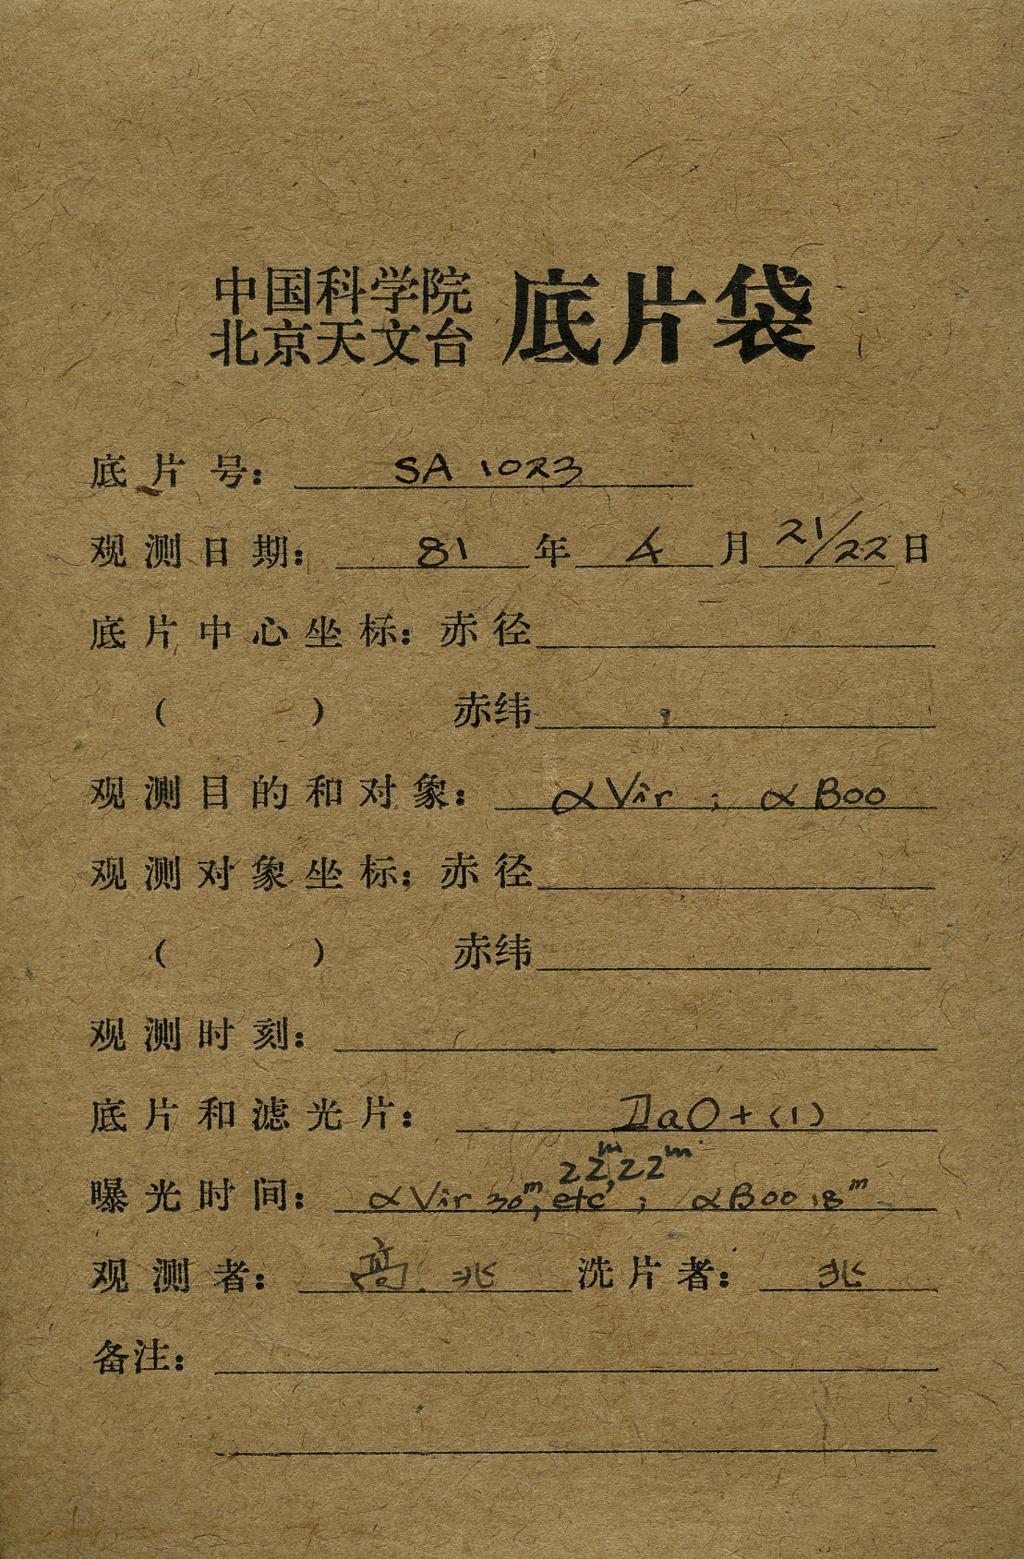 中国科学院
北京天文台 底片袋
底片号: SA 1023
观测日期: 81 年 4 月 21/22 日
底片中心坐标: 赤径
( ) 赤纬
观测目的和对象: αVir ; αBoo
观测对象坐标: 赤径
( ) 赤纬
观测时刻:
底片和滤光片: IIaO+(1)
22m,22m
曝光时间: αVir 30m, etc ; αBoo 18m
观测者: 高. 兆 洗片者: 兆
备注: